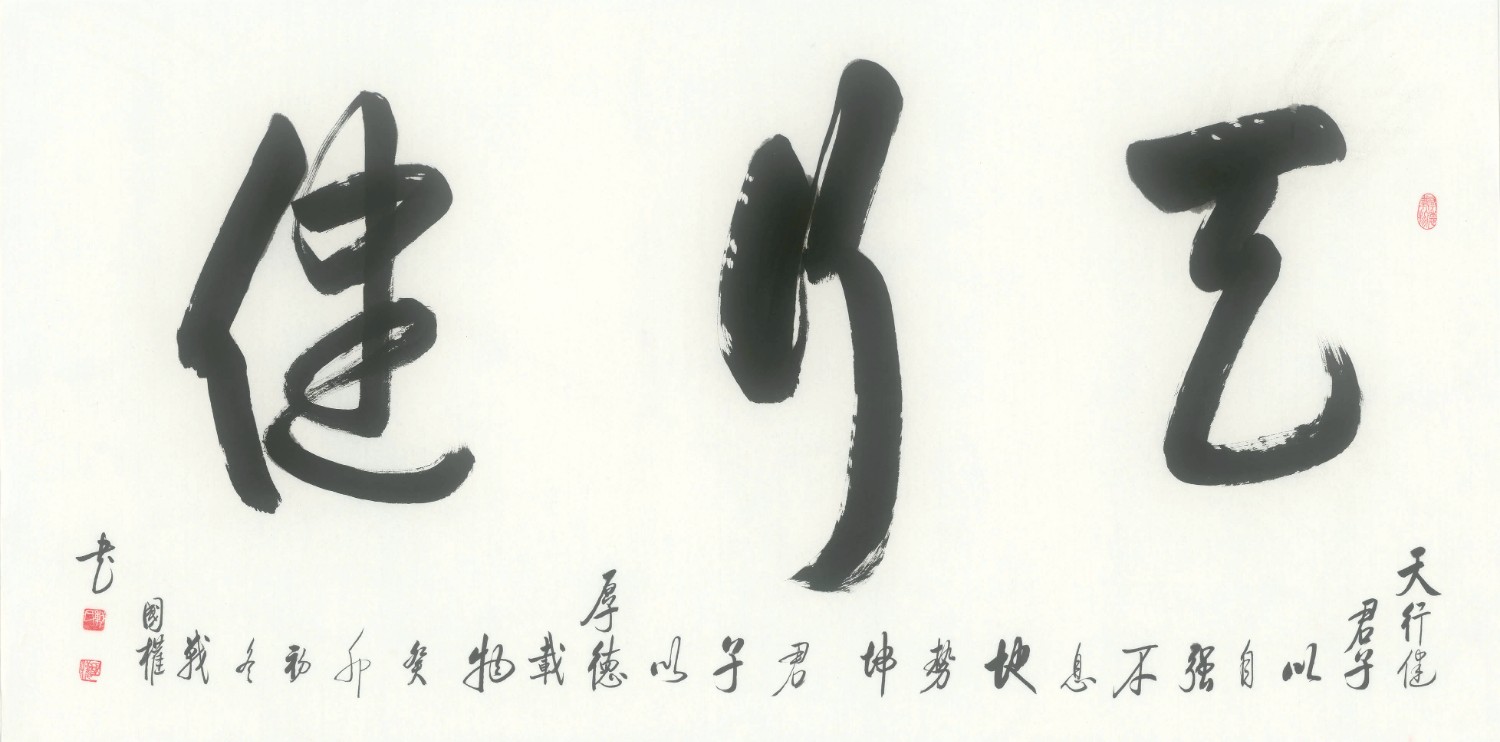 天行健
天行健
君子
以
自
强
不
息
地
勢
坤
君
子
以
厚德
載
物
癸
卯
初
冬
戴
國權
书